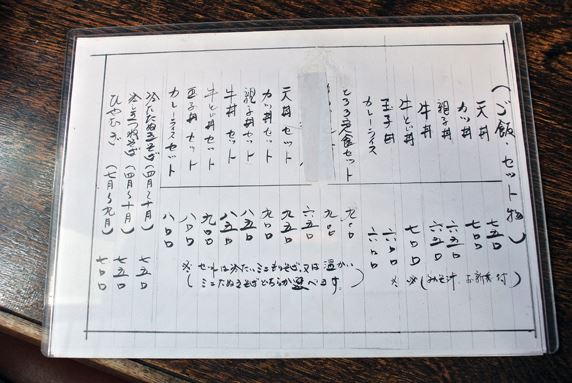 (ご飯・セット物)
天丼 七五〇
カツ丼 七〇〇
親子丼 六五〇
牛丼 六五〇
牛とじ丼 七〇〇
玉子丼 六〇〇
カレーライス 六〇〇
(みそ汁、お新香付)
とろろ定食セット 九〇〇
天丼セット 九五〇
カツ丼セット 九〇〇
親子丼セット 八五〇
牛丼セット 八五〇
牛とじ丼セット 九〇〇
玉子丼セット 八〇〇
カレーライスセット 八〇〇
※(セットは冷たいミニもりそば、又は温かい
ミニたぬきそばどちらか選べます。)
冷したぬきそば(四月〜十月) 七五〇
(四月〜十月) 七五〇
ひやむぎ (七月〜九月) 七〇〇